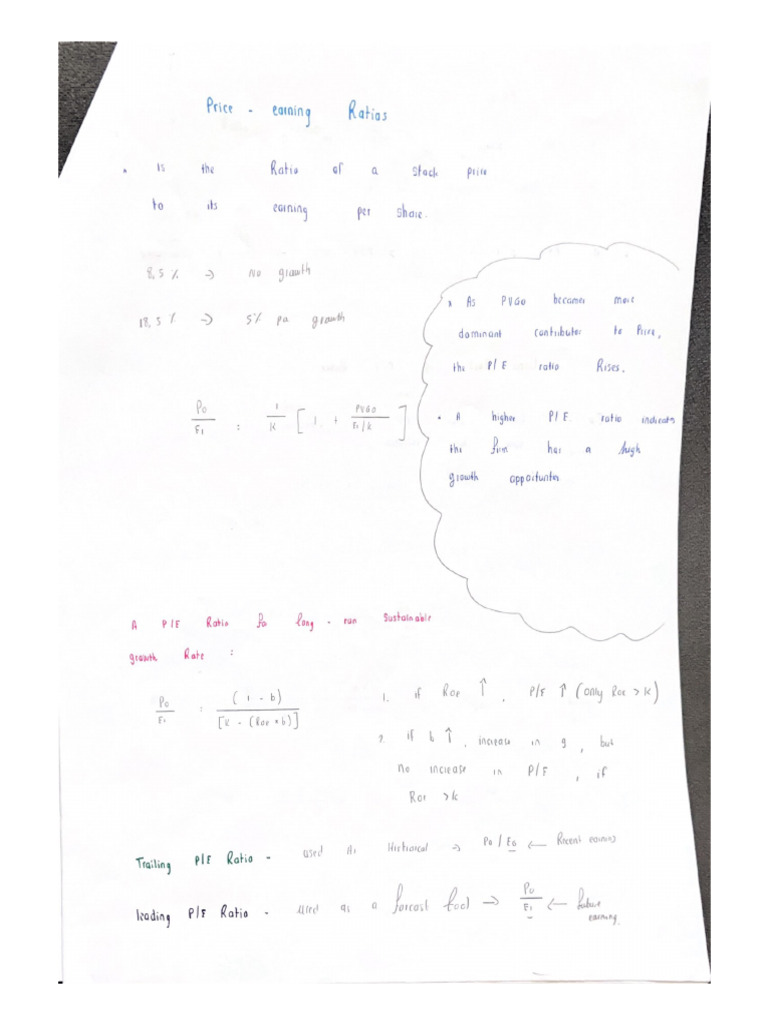 Price - earning Ratios
• is the Ratio of a stock price
to its earning per share.
8,5 % → no growth
18,5 % → 5% pa growth
P0/E1 : 1/K [ 1 + PVGO/(E1/K) ]
• As PVGO becomes more
dominant contributer to Price,
the P/E ratio Rises.
• A higher P/E ratio indicats
the firm has a high
growth
A P/E Ratio for long - run Sustainable
growth Rate :
P0/E1 : (1 - b)/[K - (ROE * b)]
1. if ROE ↑, P/E ↑ (only ROE > K)
2. if b ↑, increase in g, but
no increase in P/E, if
ROE > K
Trailing P/E Ratio - used As Historical → P0 / E0 ← Recent earning
leading P/E Ratio - used as a forcast tool → P0/E1 ← future
earning.